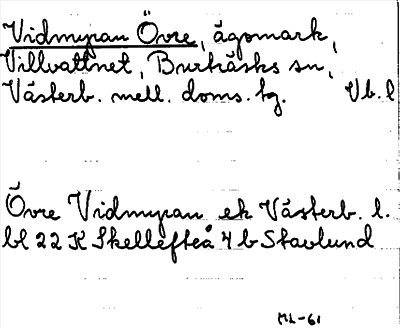 Vidmyran Övre, ägomark,
Villvattnet, Burträsks sn,
Västerb. mell. doms. tg. Vb. l
Övre Vidmyran ek Västerb. l.
bl 22 K Skellefteå 4 b Stavlund
ML-61